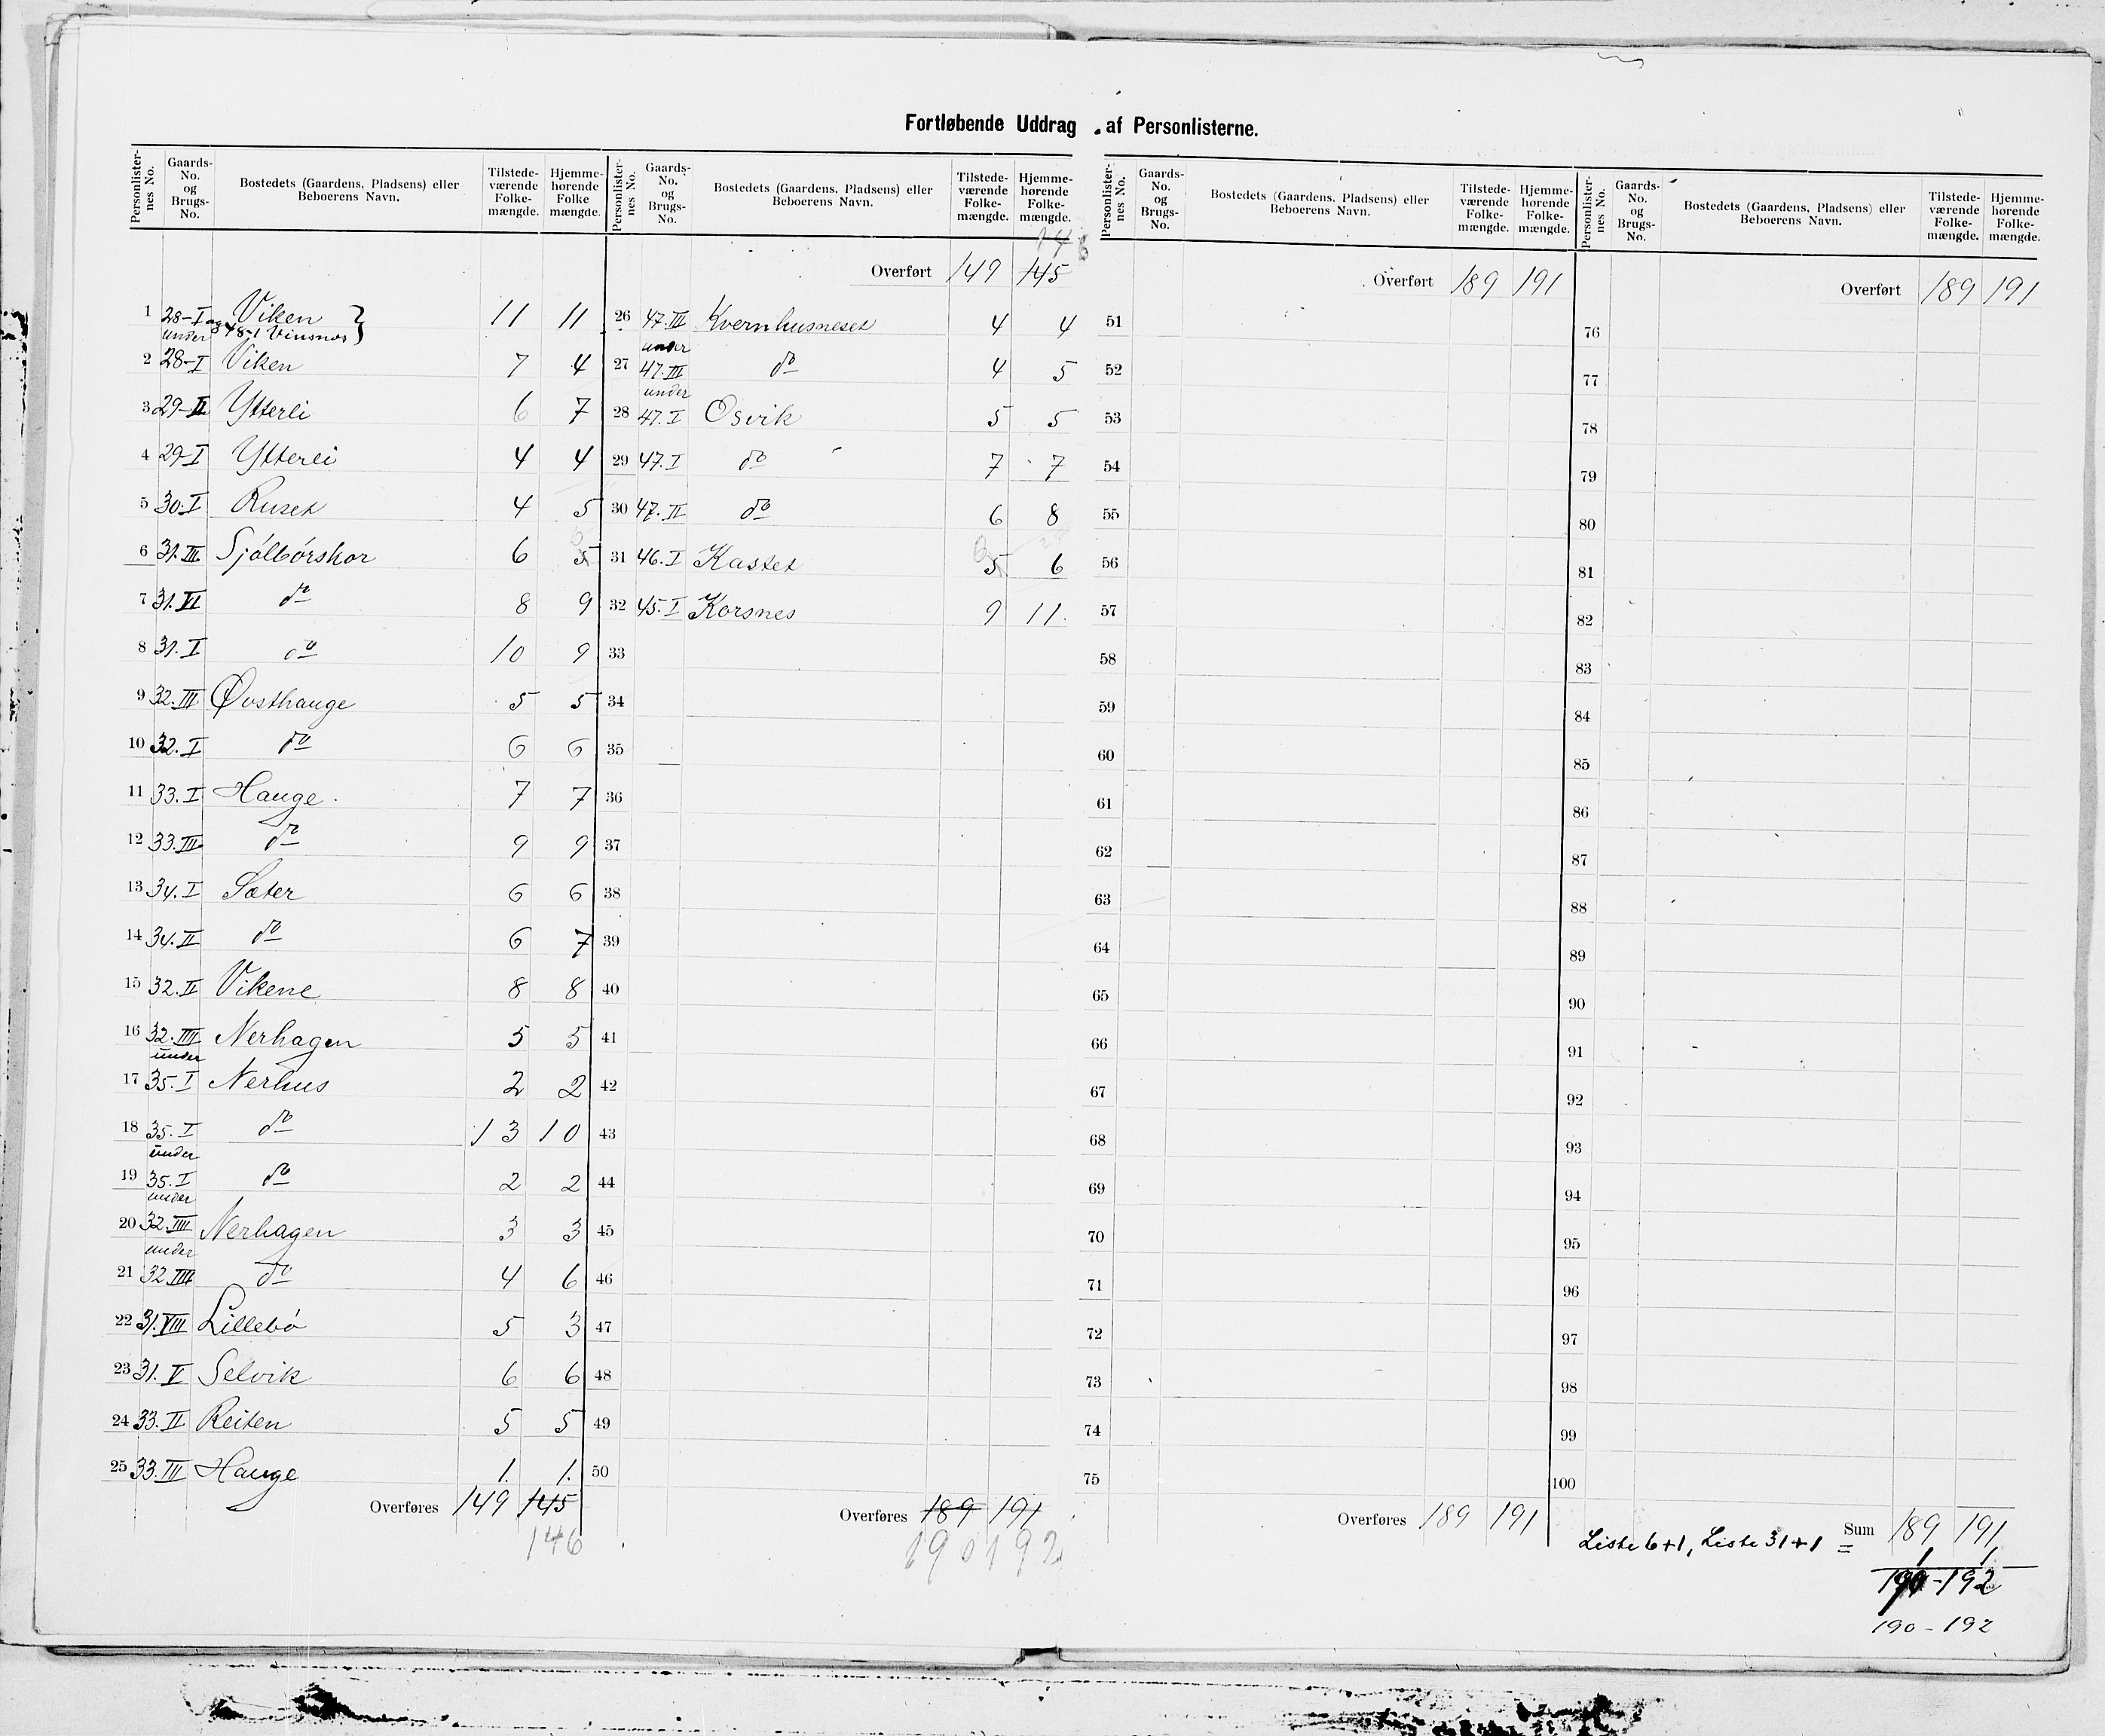 Fortløbende Uddrag af Personlisterne.
Personlisternes No. Gaards-No. og Brugs-No. Bostedets (Gaardens, Pladsens) eller Beboerens Navn. Tilstedeværende Folkemængde. Hjemmehørende Folkemængde.
1 28-I og 48-1 Viken Vinsnes 11 11
under
2 28-I Viken 7 4
3 29-II Ytterli 6 7
4 29-I Ytterli 4 4
5 30.I Ruset 4 5
6 31.III Sjólbórskor 6 5
7 31.VI do 8 9
8 31.I do 10 9
9 32.III Øvsthauge 5 5
10 32.I do 6 6
11 33.I Hauge. 7 7
12 33.III do 9 9
13 34.I Sæter 6 6
14 34.II do 6 7
15 32.II Vikene 8 8
16 32.IIII Nerhagen 5 5
under
17 35.I Nerhus 2 2
18 35.I do 13 10
under
19 35.I do 2 2
under
20 32.IIII Nerhagen 3 3
under
21 32 IIII do 4 6
22 31.VIII Lillebó 5 3
23 31.V Selvik 6 6
24 33.II Reiten 5 5
25 33.III Hauge 1. 1.
Overføres 149 145
146
Personlisternes No. Gaards-No. og Brugs-No. Bostedets (Gaardens, Pladsens) eller Beboerens Navn. Tilstedeværende Folkemængde. Hjemmehørende Folkemængde.
146
Overført 149 145
26 47.III Kvernhusneset 4 4
under
27 47.III do 4 5
under
28 47.I Osvik 5 5
29 47.I do 7 7
30 47.II do 6 8
31 46.I Kastet 5 6
32 45.I Korsnes 9 11.
33
34
35
36
37
38
39
40
41
42
43
44
45
46
47
48
49
50
Overføres 189 191
190 192
Personlisternes No. Gaards-No. og Brugs-No. Bostedets (Gaardens, Pladsens) eller Beboerens Navn. Tilstedeværende Folkemængde. Hjemmehørende Folkemængde.
Overført 189 191
51
52
53
54
55
56
57
58
59
60
61
62
63
64
65
66
67
68
69
70
71
72
73
74
75
Overføres 189 191
Personlisternes No. Gaards-No. og Brugs-No. Bostedets (Gaardens, Pladsens) eller Beboerens Navn. Tilstedeværende Folkemængde. Hjemmehørende Folkemængde.
Overført 189 191
76
77
78
79
80
81
82
83
84
85
86
87
88
89
90
91
92
93
94
95
96
97
98
99
100
Liste 6+1, Liste 31+1 = Sum 189 191
1 1
190-192
190-192